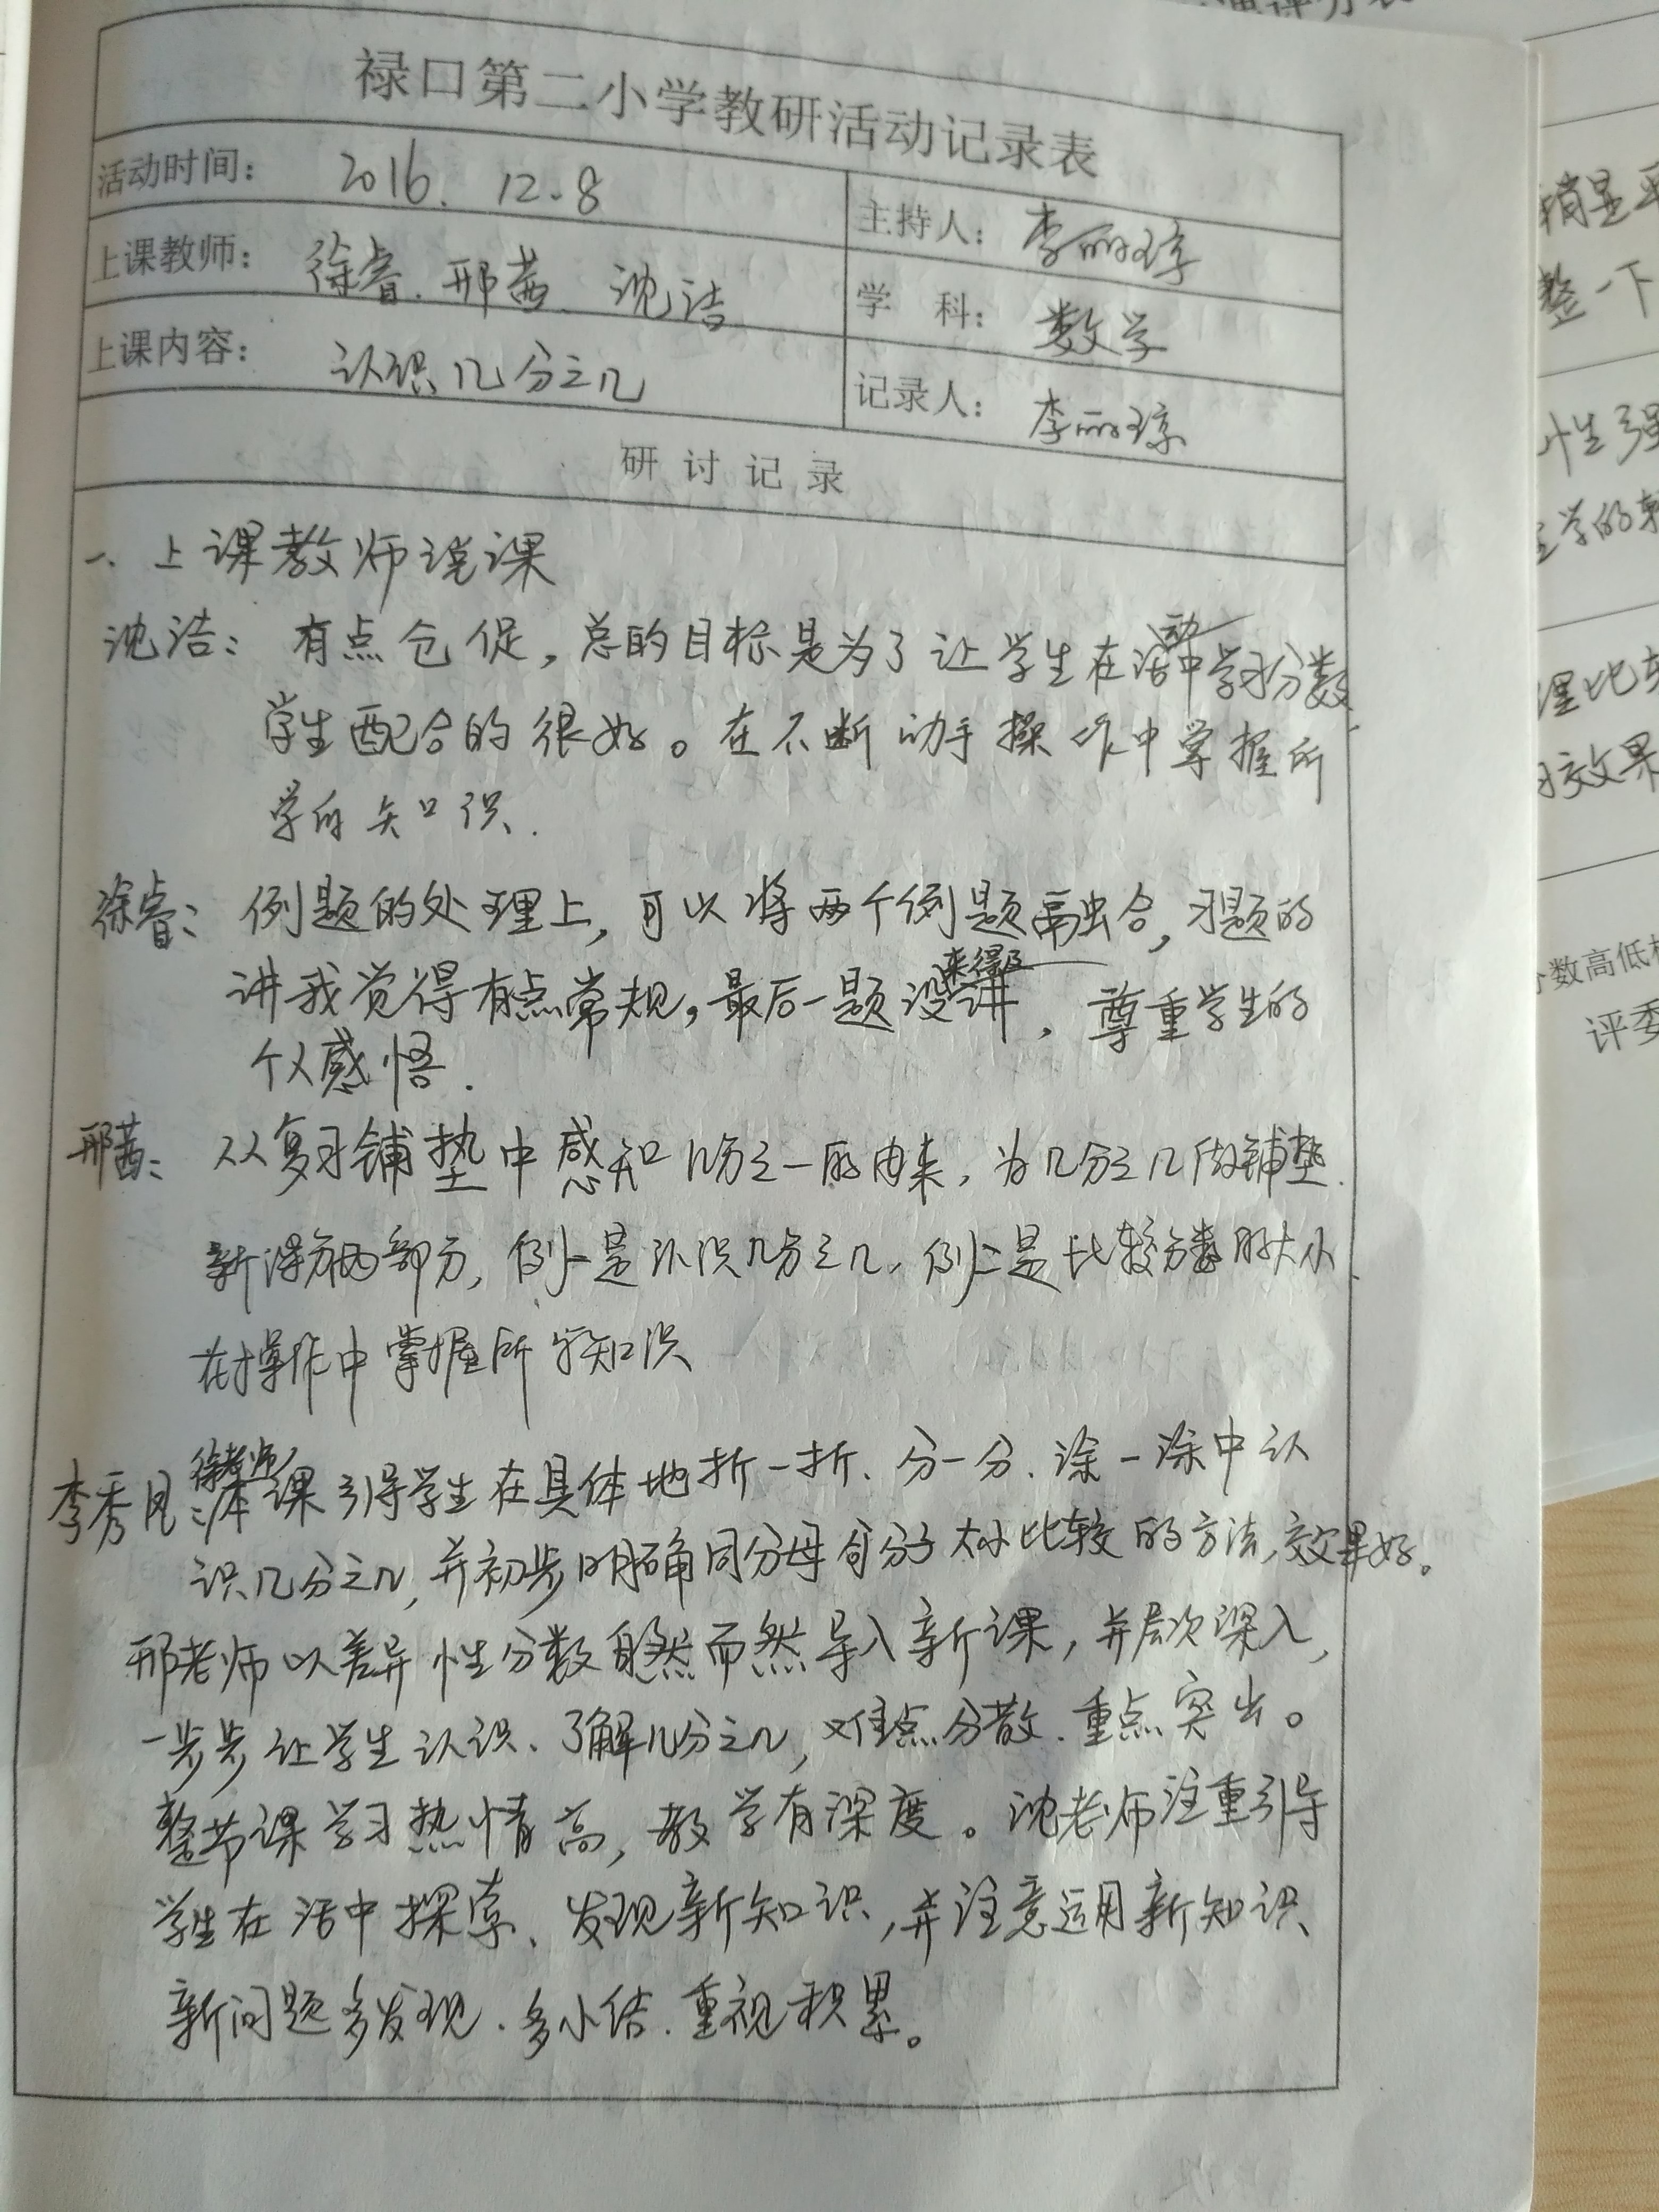 禄口第二小学教研活动记录表
活动时间： 2016. 12.8
主持人： 李丽琼
上课教师： 徐睿. 邢茜. 沈洁
学 科： 数学
上课内容： 认识几分之几
记录人： 李丽琼
研 讨 记 录
一、上课教师说课
沈洁： 有点仓促，总的目标是为了让学生在活动中学习分数
学生配合的很好。在不断动手操作中掌握所
学的知识.
徐睿： 例题的处理上，可以将两个例题融合，习题的
讲我觉得有点常规，最后一题没来得及讲，尊重学生的
个人感悟.
邢茜： 从复习铺垫中感知几分之一的由来，为几分之几做铺垫.
新课分两部分，例一是认识几分之几，例二是比较分数的大小.
在操作中掌握所学知识
李秀凤：徐老师本课引导学生在具体地折一折、分一分、涂一涂中认
识几分之几，并初步明确同分母分子大小比较的方法，效果好。
邢老师以差异性分数自然而然导入新课，并层次深入，
一步步让学生认识、了解几分之几，难点分散.重点突出。
整节课学习热情高，教学有深度。沈老师注重引导
学生在活中探索、发现新知识，并注意运用新知识、
新问题多发现.多小结.重视积累。
稍显平
整一下
性强
学的
理比较
习效果
分数高低
评委